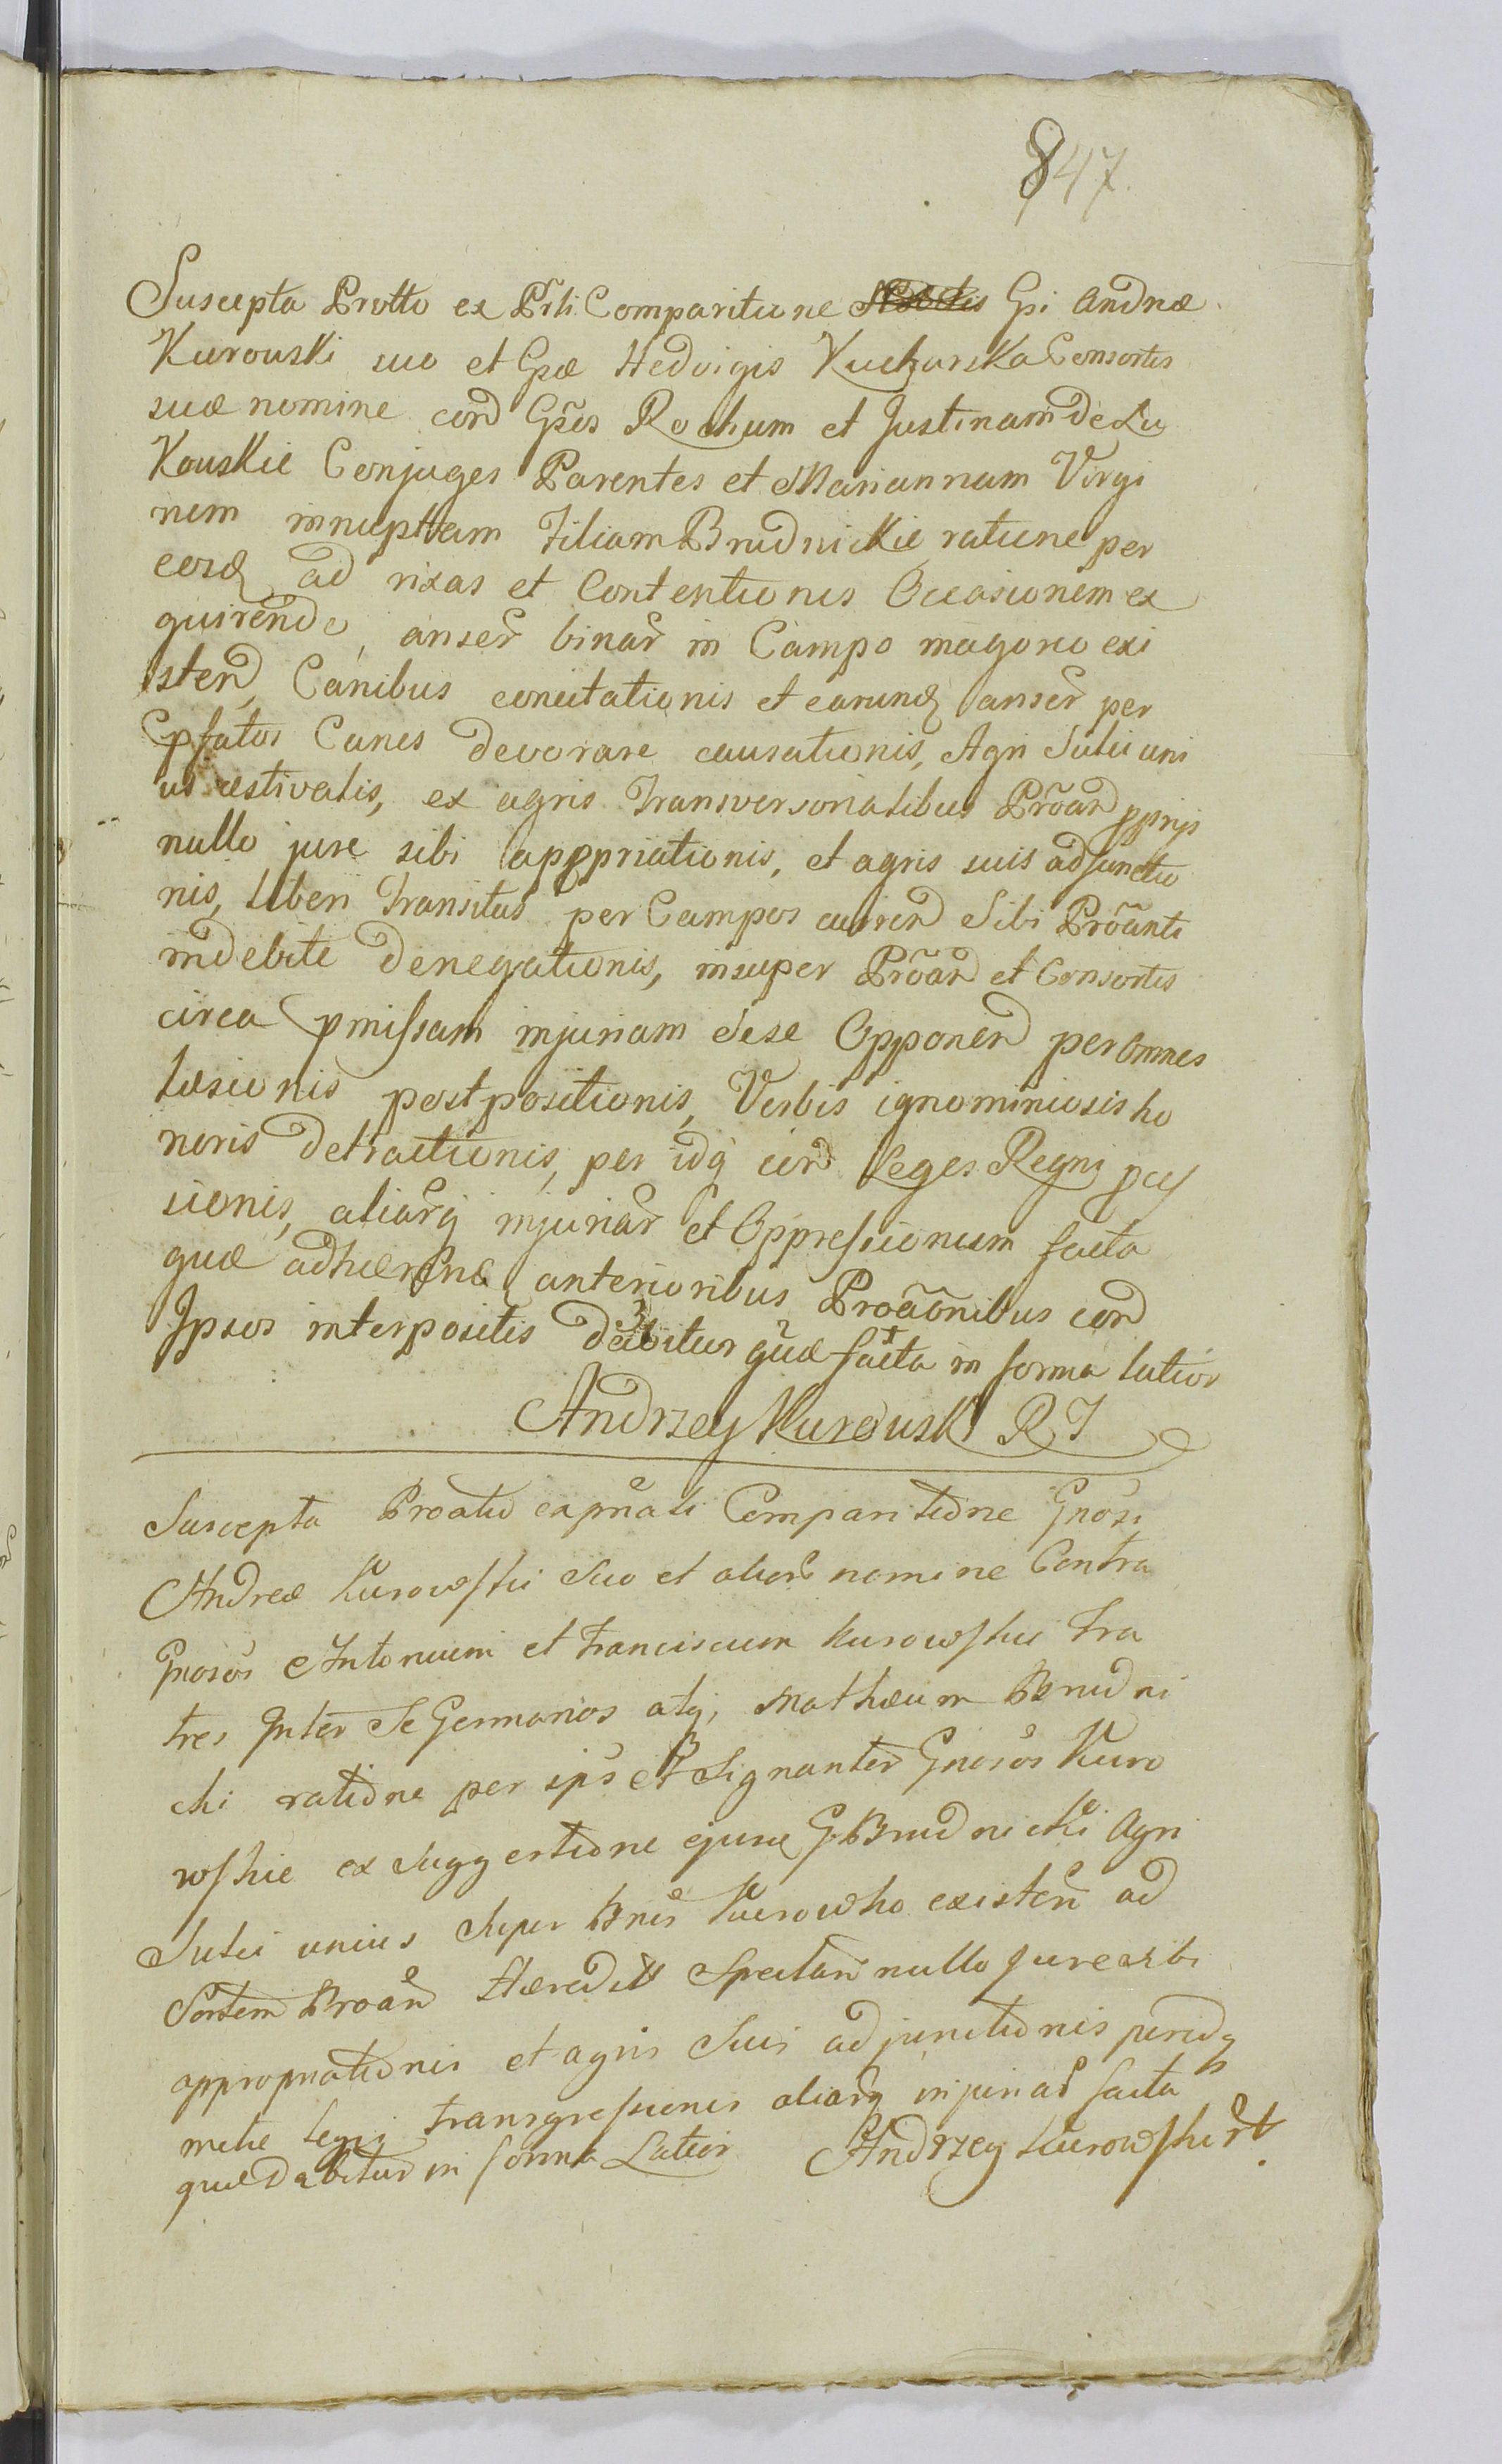 847.
Suscepta Protto ex Prti Comparitione Gsi Andreæ
Kurouski suo et Gsæ Hedvigis Kucharska Consortis
suæ nomine con͠d Gños Rochum et Justinam de Lu
Kouskie Conjuges Parentes et Mariannam Virgi
nem innuptam Filiam Brudnickie ratione per
eosd ad rixas et Contentionis Occasionem ex
quirende, anser binar in Campo magoreo exi
sten, Canibus concitationis et earund anser per
pfatos Canes devorare causationis, Agri Sulci uni
us æstivalis, ex agris Transversorialibus Proãn pprijs
nullo jure sibi apppriationis, et agris suis adjunctio
nis, Liberi Transitus per Campos curren Sibi Proãnti
indebite denegationis, insuper Proãn et Consortis
circa pmissam injuriam sese Opponen per omnes
læsionis postpositionis, Verbis ignominiosis ho
noris detractionis, per idq con Leges Regni pec
sionis, aliarq injuriar et Oppressionum facta
quæ adhæren anterioribus Proãonibus con
Ipsos interpositis dabitur quæ facta in forma latior
Andrzey Kurouski R J
Suscepta Proatio ex pñali Comparitione Gnosi
Andreæ Kurowski Suo et alior nomine Contra
Gnosos Antonium et Franciscum Kurowskie Fra
tres Inter Se Germanos atq, Mathæum Brudni
cki ratione per ips et Signanter Gnosos Kuro
wskie ex suggestione ejusd G. Brudnicki Agri
Sulci unius Super Bnis Kurowko existen ad
Sortem Proan Hæredit Spectan nullo jure sibi
appropriationis et agris Suis adjunctionis peridq
metie legis transgressionis aliarq injuriar facta
quæ dabitur in forma Latior Andrzey Kurowski